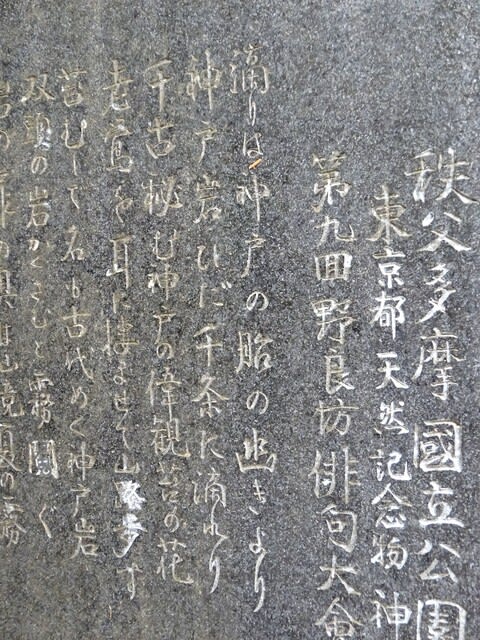 秩父多摩國立公園
東京都天然記念物神
第九回野良坊俳句大会
滴りは神戸の胎の幽きより
神戸岩ひだ千条に滴れり
千古秘む神戸の偉観苔の花
老鶯を耳に棲ませて山路歩す
苔むして名も古代めく神戸岩
双頭の岩かくさむと霧閧ぐ